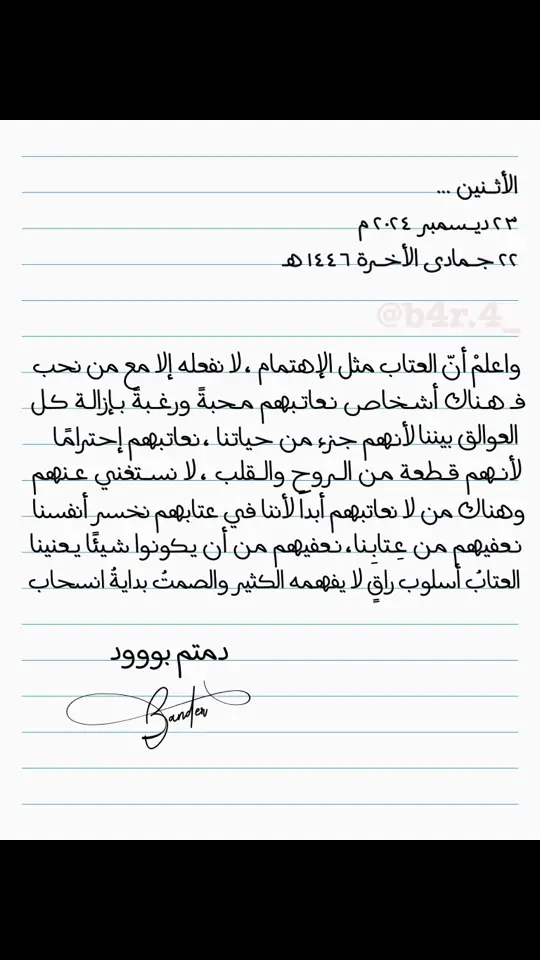 الأثنين ...
٢٣ ديسمبر ٢٠٢٤ م
٢٢ جمادى الأخرة ١٤٤٦ هـ
@b4r.4_
واعلمْ أنّ العتاب مثل الإهتمام ، لا نفعله إلا مع من نحب
فـ هناك أشخاص نعاتبهم محبةً ورغبةً بإزالة كل
العوالق بيننا لأنهم جزء من حياتنا ، نعاتبهم إحترامًا
لأنهم قطعة من الروح والقلب ، لا نستغني عنهم
وهناك من لا نعاتبهم أبداً لأننا في عتابهم نخسر أنفسنا
نعفيهم من عِتابِنا، نعفيهم من أن يكونوا شيئًا يعنينا
العتابُ أسلوب راقٍ لا يفهمه الكثير والصمتُ بدايةُ انسحاب
دمتم بووود
Bander